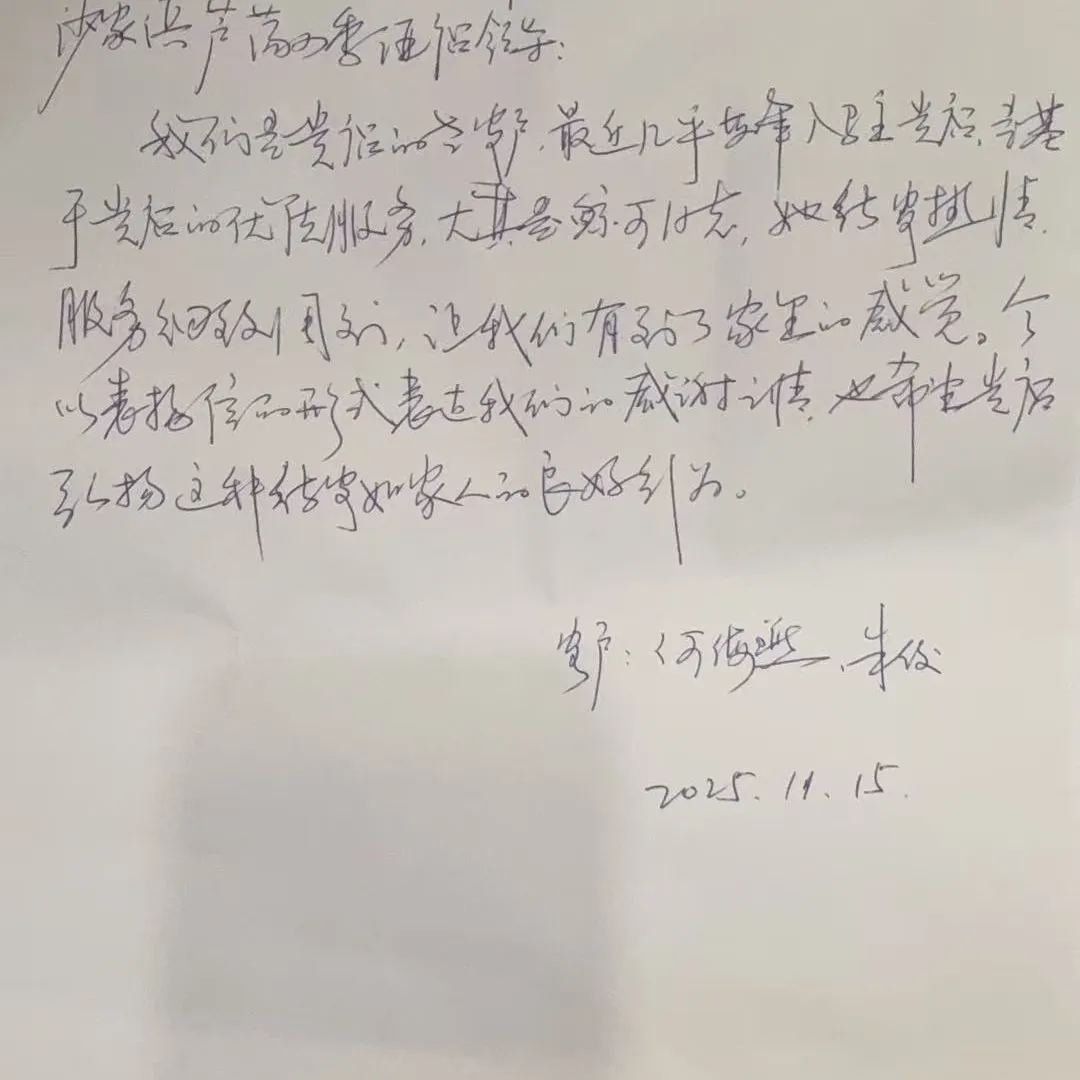 沙家浜芦荡四季酒店领导:
我们是贵店的老客户,最近几乎每年入住贵店,寺基
于贵店的优质服务,尤其是 可 ,她待客热情,
服务细致周到,让我们有到了家里的感觉。今
以表扬信的形式表达我们的感谢之情,也希望贵店
弘扬这种待客如家人的良好行为。
客户:何海燕、朱俊
2025.11.15.